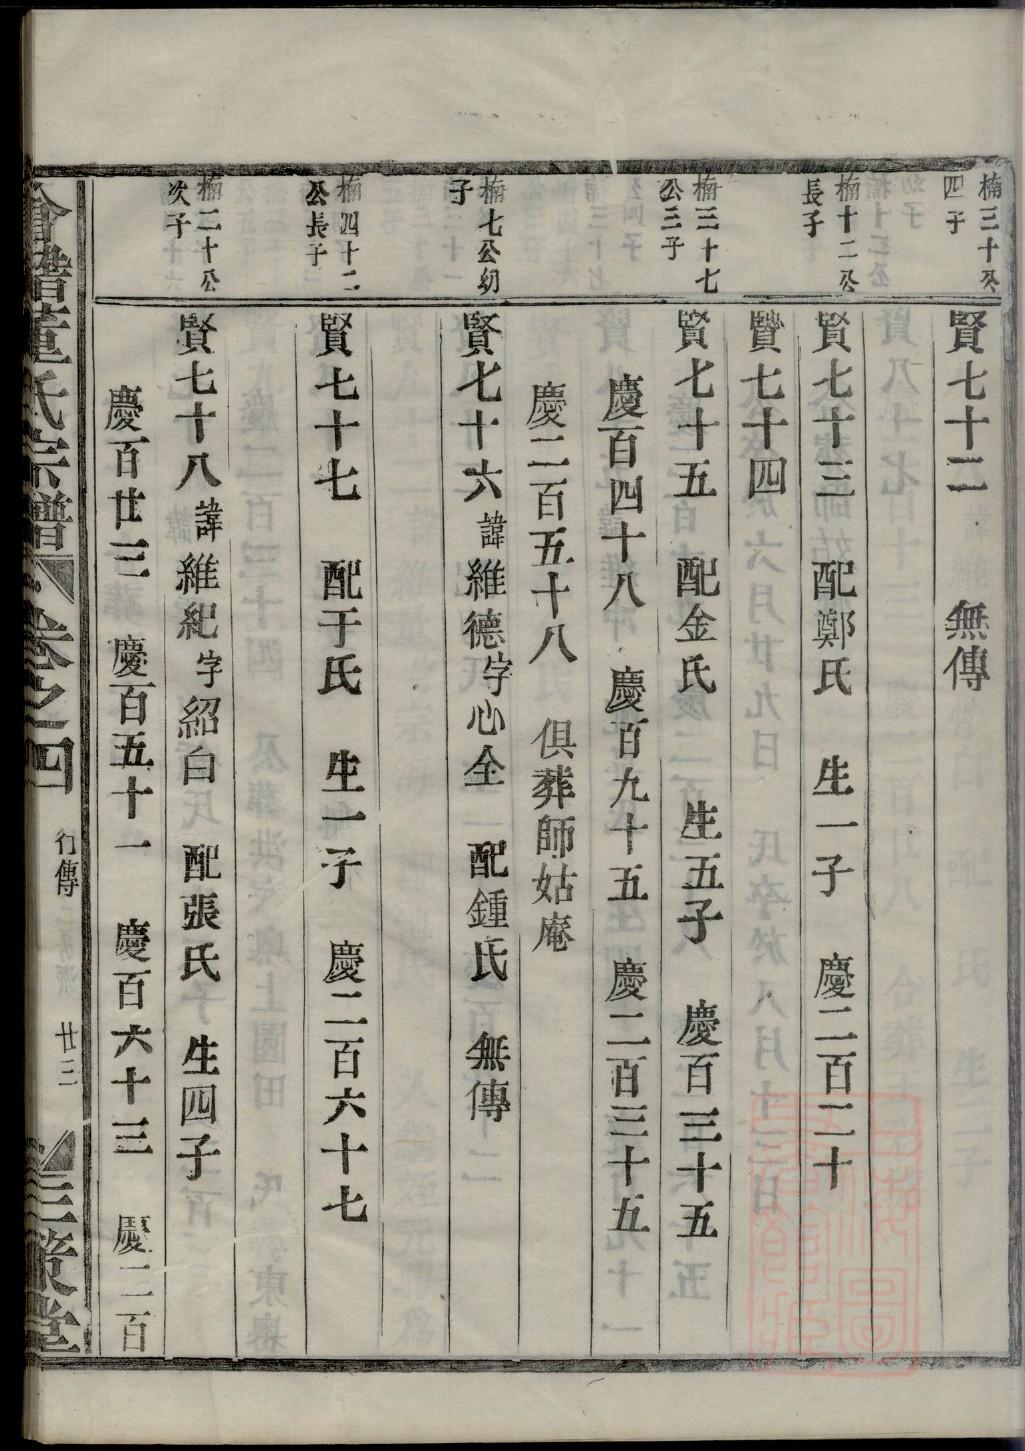 楠三十公
四子
賢七十二 無傳
楠十二公
長子
賢七十三 配鄭氏 生一子 慶二百二十
賢七十四
楠三十七
公三子
賢七十五 配金氏 生五子 慶百三十五
慶百四十八 慶百九十五 慶二百三十五
慶二百五十八 俱葬師姑庵
楠七公幼
子
賢七十六諱維德字心全 配鍾氏 無傳
楠四十二
公長子
賢七十七 配于氏 生一子 慶二百六十七
楠二十公
次子
賢七十八諱維紀字紹白 配張氏 生四子
慶百廿三 慶百五十一 慶百六十三 慶二百
會稽董氏宗譜 卷之四 行傳 廿三 三策堂